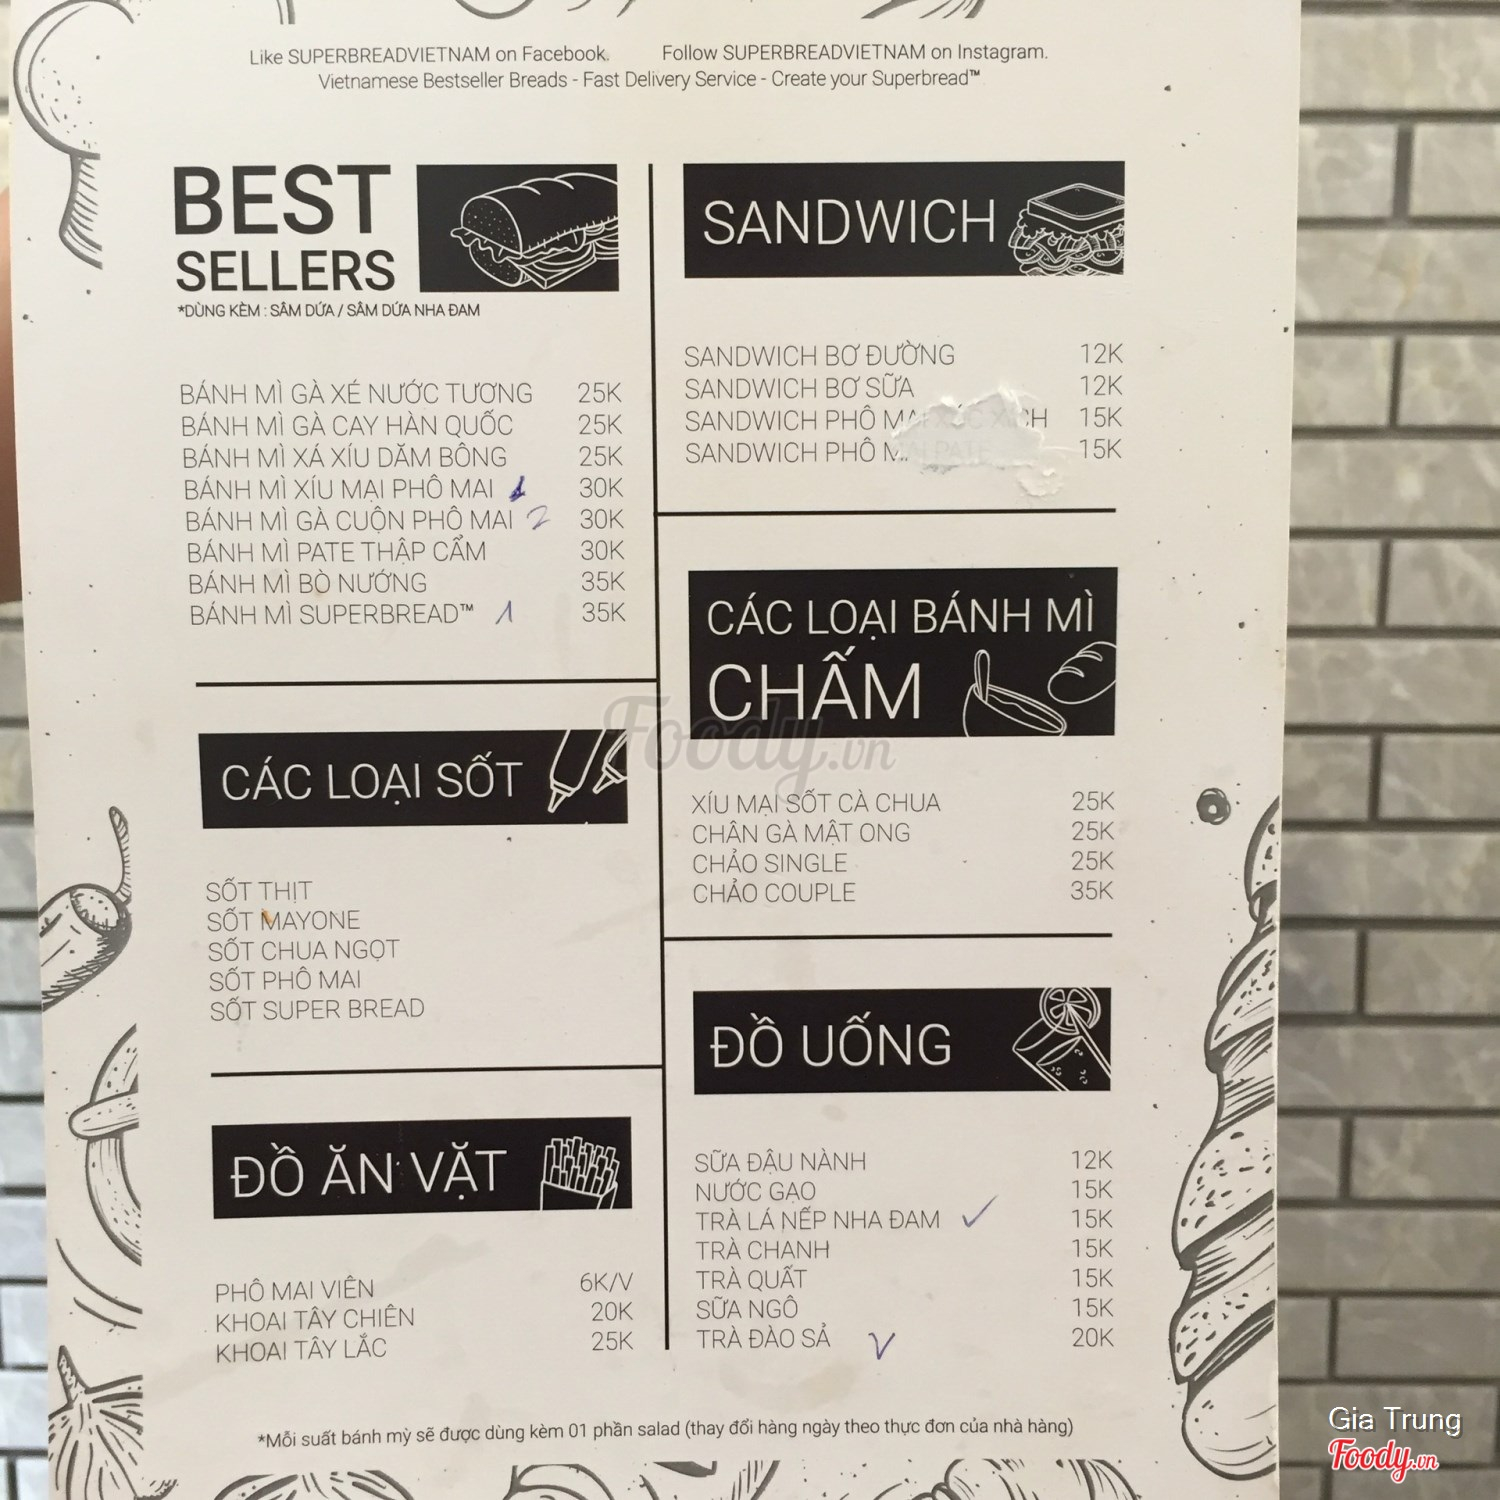 Like SUPERBREADVIETNAM on Facebook. Follow SUPERBREADVIETNAM on Instagram.
Vietnamese Bestseller Breads - Fast Delivery Service - Create your Superbread™
BEST
SELLERS
*DÙNG KÈM : SÂM DỨA / SÂM DỨA NHA ĐAM
BÁNH MÌ GÀ XÉ NƯỚC TƯƠNG 25K
BÁNH MÌ GÀ CAY HÀN QUỐC 25K
BÁNH MÌ XÁ XÍU DĂM BÔNG 25K
BÁNH MÌ XÍU MẠI PHÔ MAI 1 30K
BÁNH MÌ GÀ CUỘN PHÔ MAI 2 30K
BÁNH MÌ PATE THẬP CẨM 30K
BÁNH MÌ BÒ NƯỚNG 35K
BÁNH MÌ SUPERBREAD™ 1 35K
CÁC LOẠI SỐT
SỐT THỊT
SỐT MAYONE
SỐT CHUA NGỌT
SỐT PHÔ MAI
SỐT SUPER BREAD
ĐỒ ĂN VẶT
PHÔ MAI VIÊN 6K/V
KHOAI TÂY CHIÊN 20K
KHOAI TÂY LẮC 25K
SANDWICH
SANDWICH BƠ ĐƯỜNG 12K
SANDWICH BƠ SỮA 12K
SANDWICH PHÔ MAI XÚC XÍCH 15K
SANDWICH PHÔ MAI PATE 15K
CÁC LOẠI BÁNH MÌ
CHẤM
XÍU MẠI SỐT CÀ CHUA 25K
CHÂN GÀ MẬT ONG 25K
CHẢO SINGLE 25K
CHẢO COUPLE 35K
ĐỒ UỐNG
SỮA ĐẬU NÀNH 12K
NƯỚC GẠO 15K
TRÀ LÁ NẾP NHA ĐAM 15K
TRÀ CHANH 15K
TRÀ QUẤT 15K
SỮA NGÔ 15K
TRÀ ĐÀO SẢ 20K
*Mỗi suất bánh mỳ sẽ được dùng kèm 01 phần salad (thay đổi hàng ngày theo thực đơn của nhà hàng)
Foody.vn
Gia Trung
Foody.vn